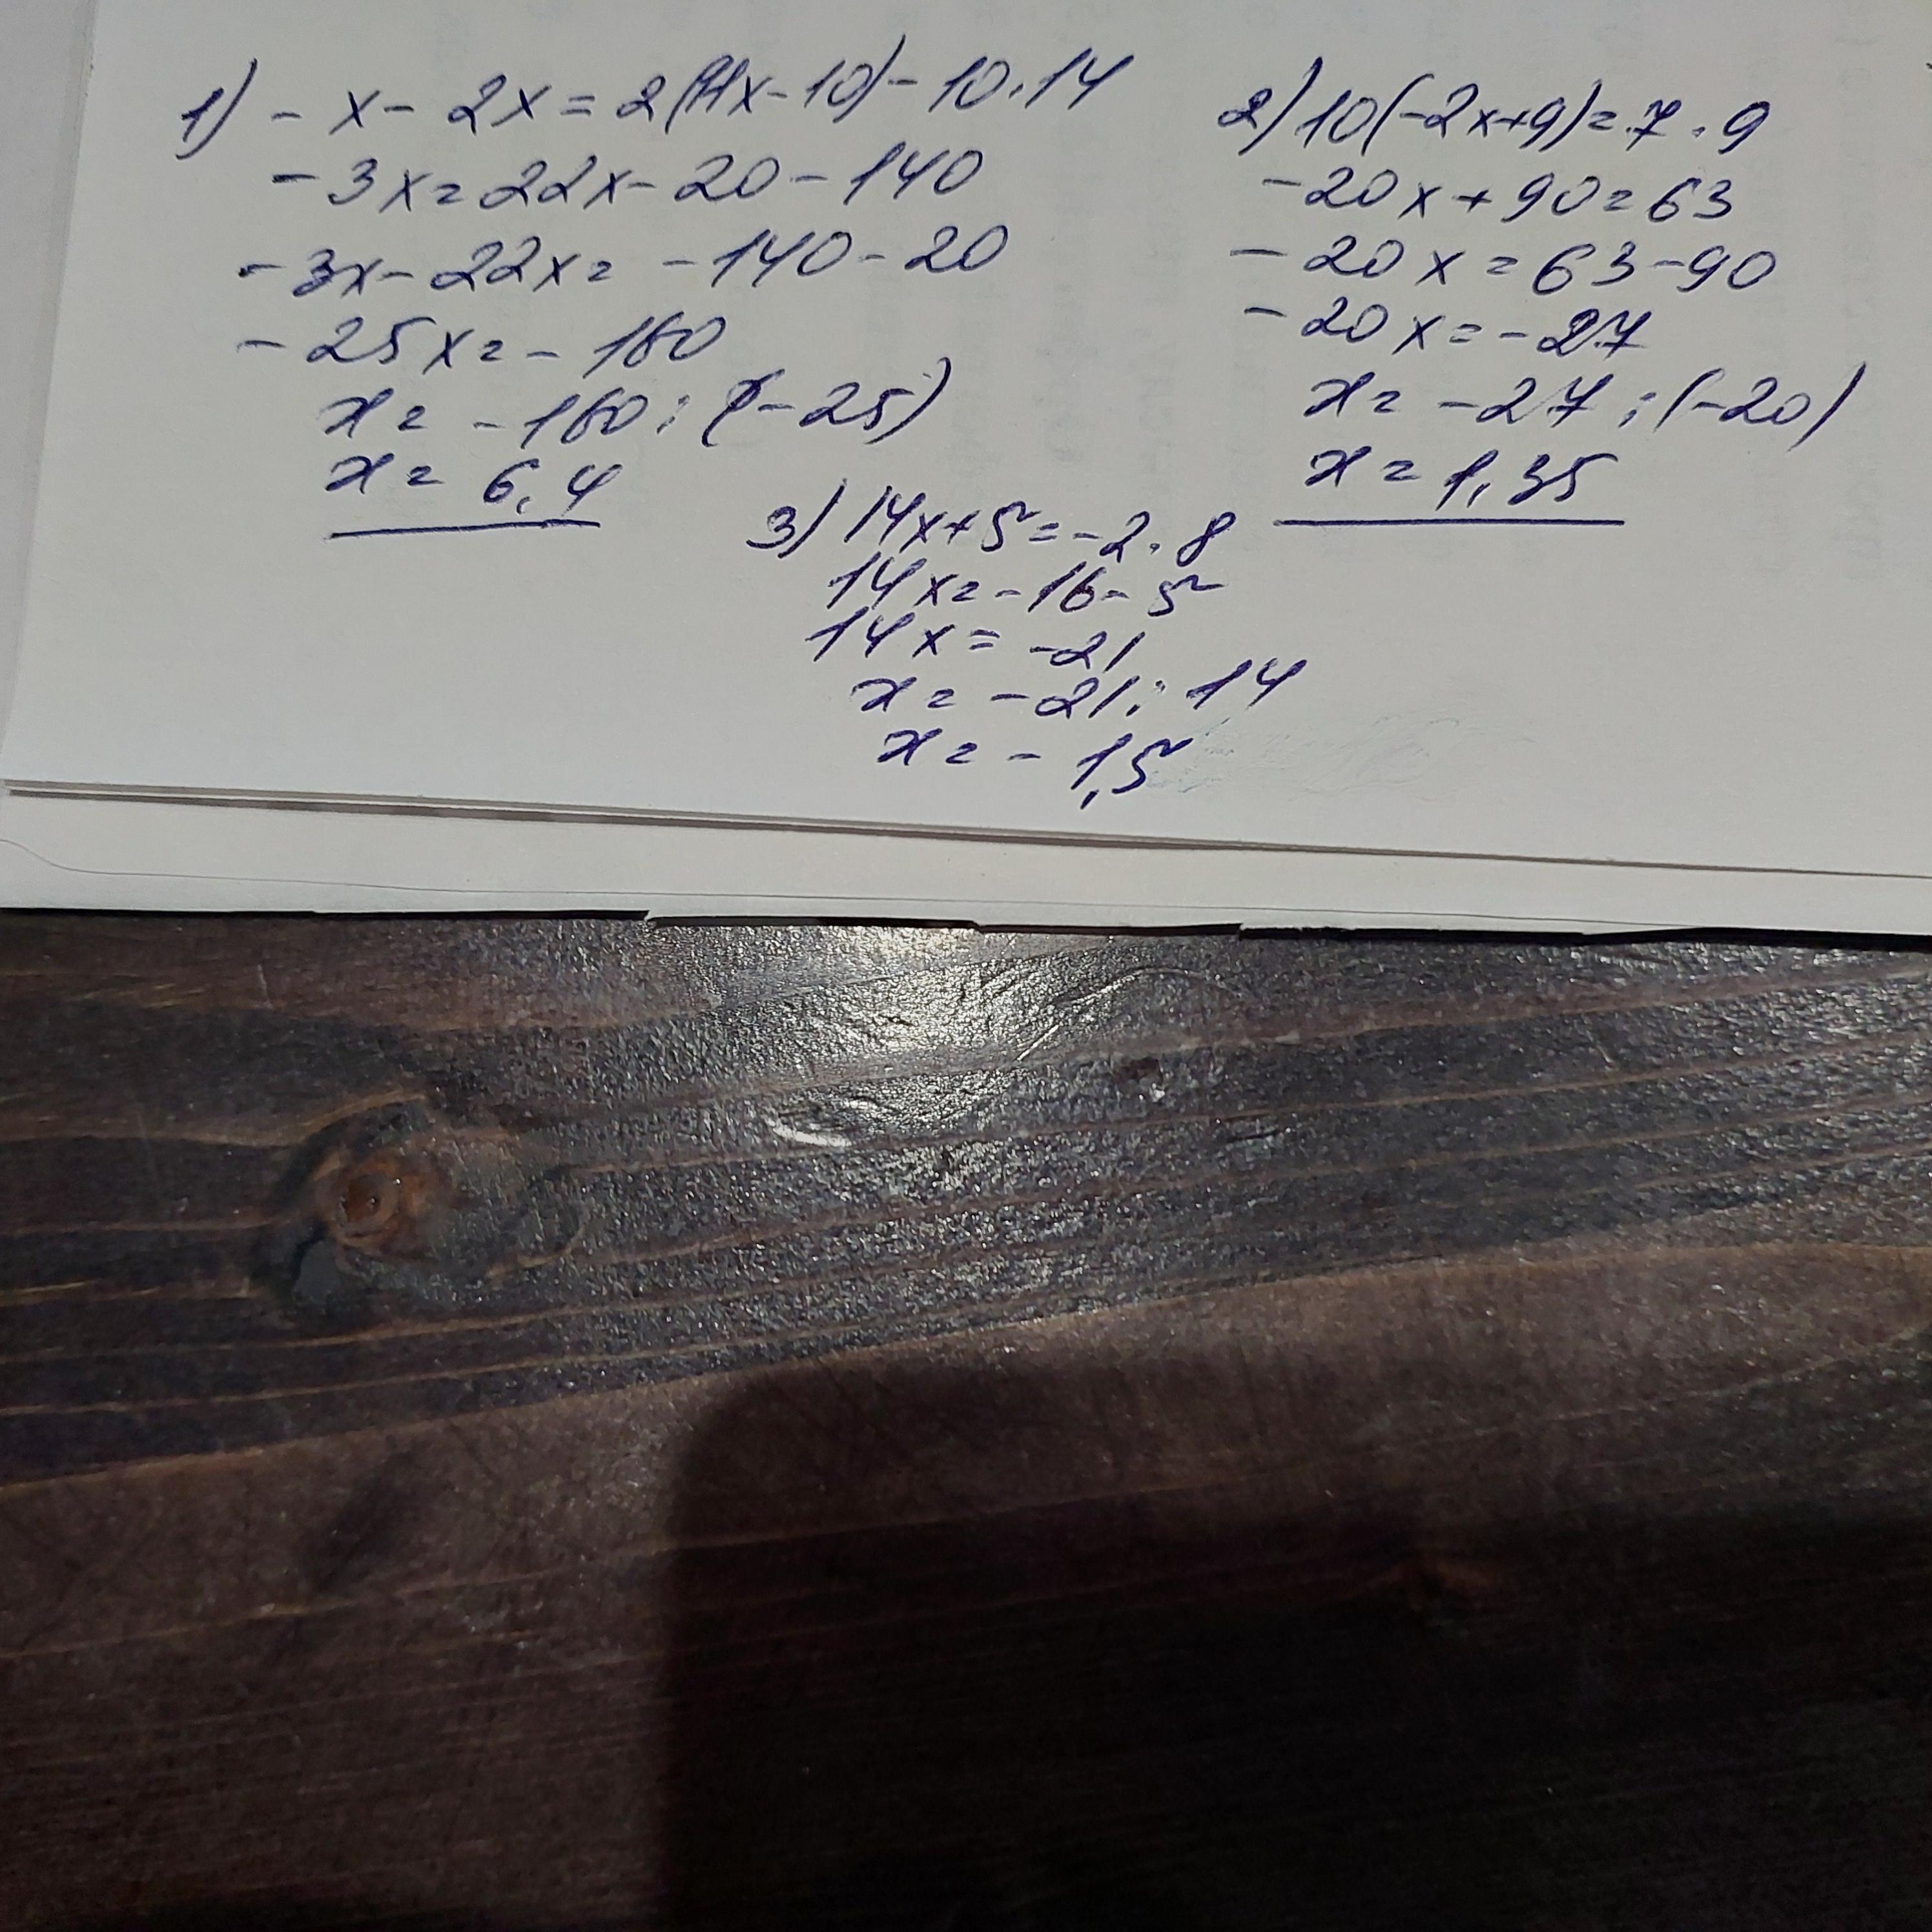 1) - x - 2x = 2(11x - 10) - 10 · 14
- 3x = 22x - 20 - 140
- 3x - 22x = - 140 - 20
- 25x = - 160
x = - 160 : (- 25)
x = 6,4
2) 10(-2x+9) = 7 · 9
- 20x + 90 = 63
- 20x = 63 - 90
- 20x = - 27
x = - 27 : (-20)
x = 1,35
3) 14x + 5 = - 2 · 8
14x = - 16 - 5
14x = - 21
x = - 21 : 14
x = - 1,5